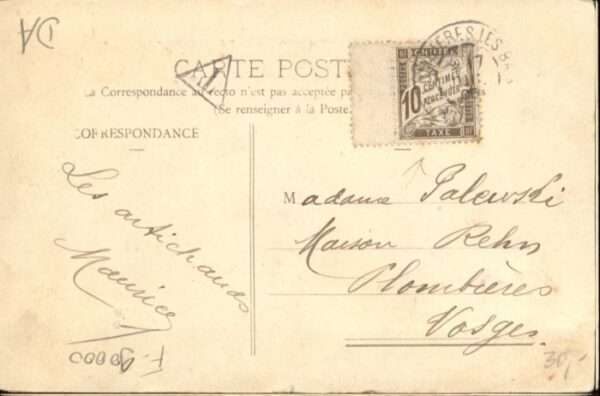 DA
CARTE POST
La Correspondance au recto n'est pas acceptée pa
(Se renseigner à la Poste.
CORRESPONDANCE
CHIFFRE
10
CENTIMES
A PERCEVOIR
TAXE
BIÈRES LES B
T
Les artichauds
Maurice
Madame Palewski
Maison Rehn
Plombières
Vosges.
F. 90000
30,-